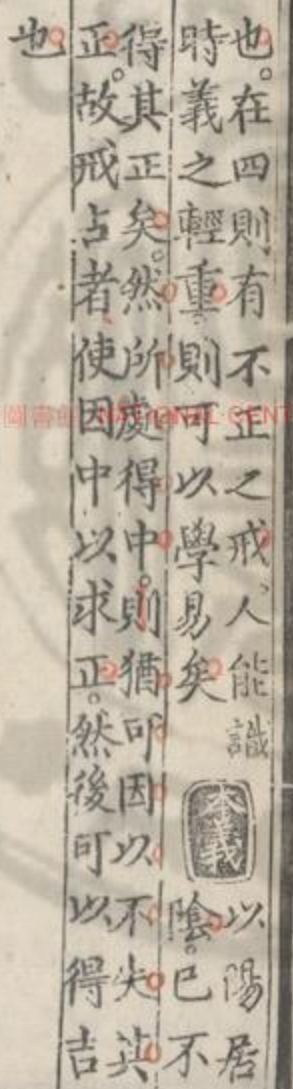 也。在四則有不正之戒、人能識
時義之輕重則可以學易矣
本義
以陽居
陰。已不
得其正矣。然所處得中。則猶可因以不失其
正。故戒占者、使因中以求正。然後可以得吉
也
圖書館 NATIONAL CENT